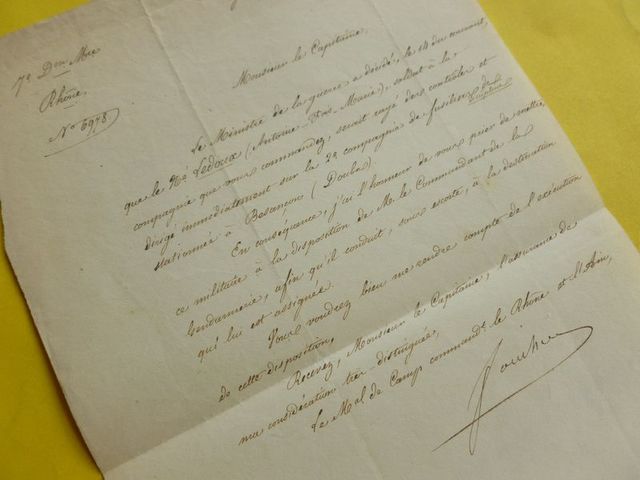 7e Don Mre
Rhône.
No 6978
Monsieur le Capitaine,
Le Ministre de la guerre a décidé, le 14 du courant,
que le Né Ledoux (Antoine-Fois Marie), soldat à la
compagnie que vous commandez, serait rayé des contrôles et
dirigé immédiatement sur la 2e compagnie de fusiliers de
stationnée à Besançon (Doubs).
En conséquence, j'ai l'honneur de vous prier de mettre,
ce militaire à la disposition de Mr. le Commandant de la
Gendarmerie, afin qu'il conduit, sous escorte, à la destination
qui lui est assignée.
Vous voudrez bien me rendre compte de l'exécution
de cette disposition.
Recevez, Monsieur le Capitaine, l'assurance de
ma considération très-distinguée,
Le Mal de Camp commandt. le Rhône et l'Ain,